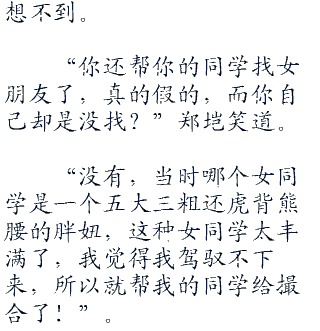 想不到。
“你还帮你的同学找女
朋友了，真的假的，而你自
己却是没找？”郑垲笑道。
“没有，当时哪个女同
学是一个五大三粗还虎背熊
腰的胖妞，这种女同学太丰
满了，我觉得我驾驭不下
来，所以就帮我的同学给撮
合了！”。